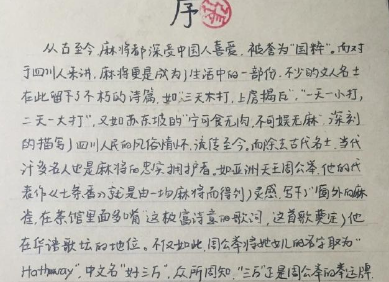 序
从古至今，麻将都深受中国人喜爱，被誉为"国粹"。而对
于四川人来讲，麻将更是成为了生活中的一部份，不少的文人名士
在此留下了不朽的诗篇，如"三天不打，上房揭瓦"，"一天一小打，
二天一大打"，又如苏东坡的"宁可食无肉，不可娱无麻"，深刻
的描写了四川人民的风俗情怀，流传至今。而除去古代名士，当代
许多名人也是麻将的忠实拥护者，如亚洲天王周公举，他的代
表作《七条香》就是由一场麻将而得到了灵感，写下了"窗外的麻
雀，在茶馆里面多嘴"这极富诗意的歌词，这首歌奠定了他
在华语歌坛的地位。不仅如此，周公举将她女儿的名字取为"
Hathaway"，中文名"好三万"，众所周知，"三万"正是周公举的幸运牌